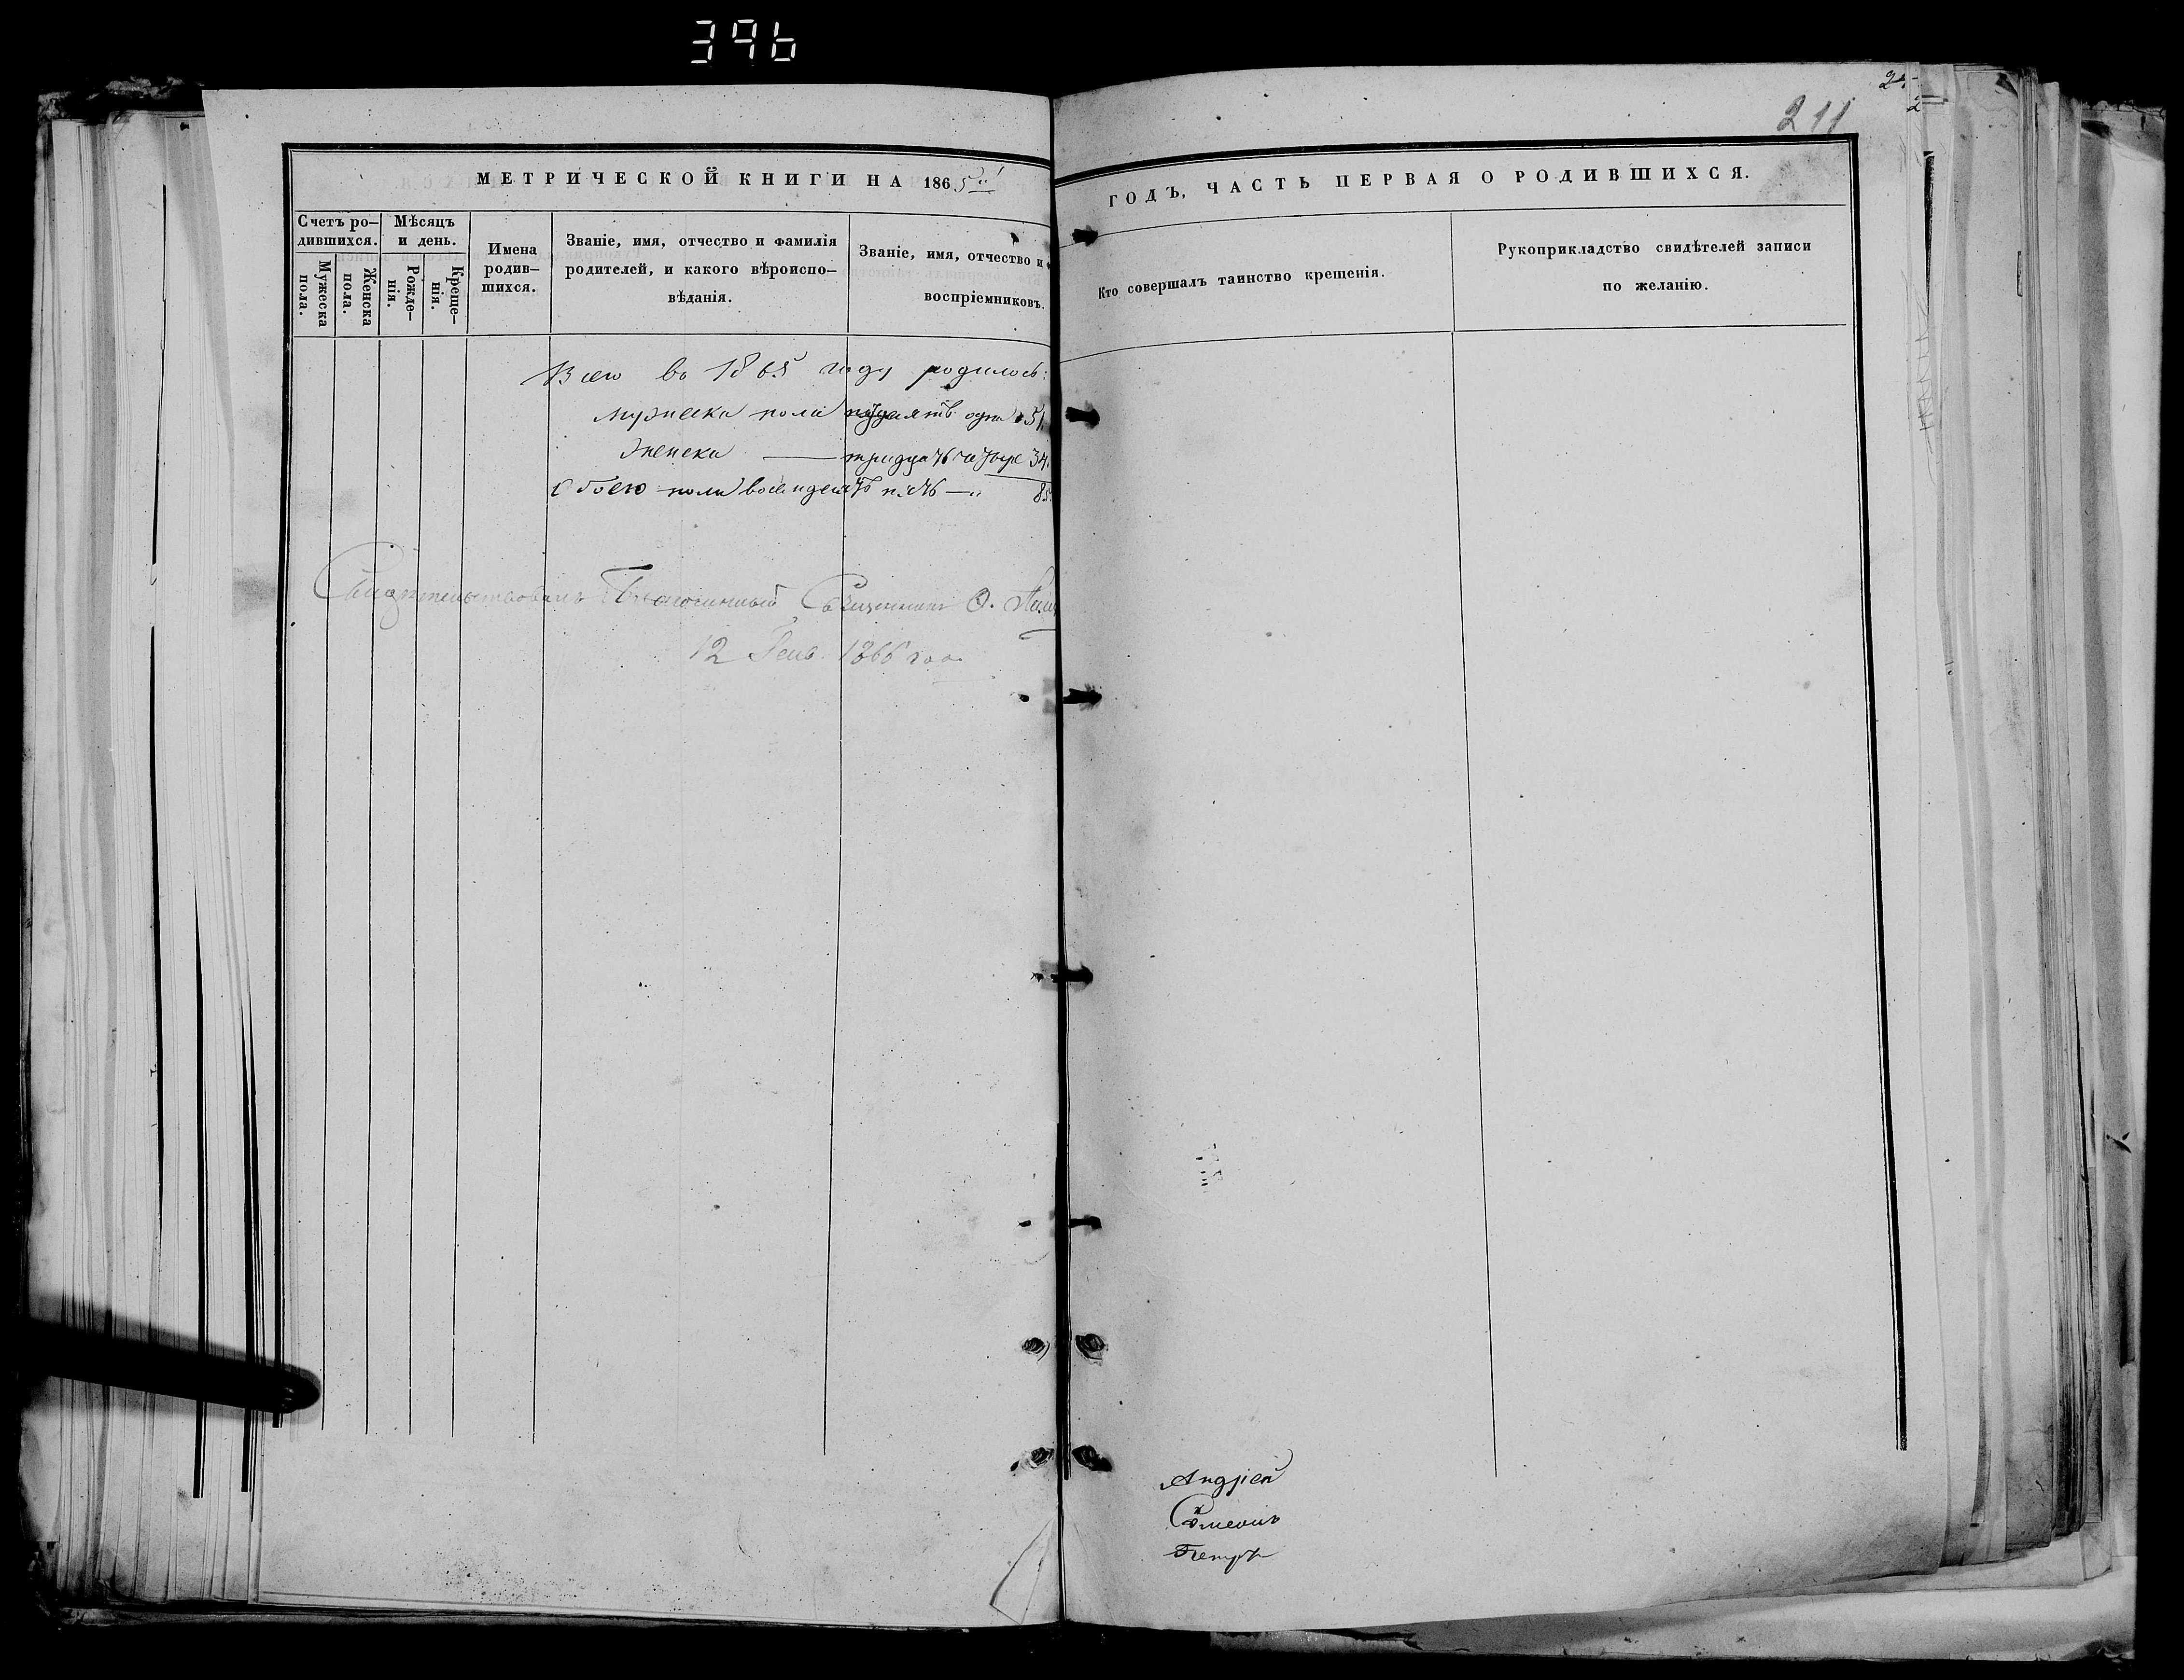 396
211
МЕТРИЧЕСКОЙ КНИГИ НА 1865
Счетъ ро-
дившихся.
Мужеска
пола.
Женска
пола.
Мѣсяцъ
и день.
Рожде-
нія.
Креще-
нія.
Имена
родив-
шихся.
Званіе, имя, отчество и фамилія
родителей, и какого вѣроиспо-
вѣданія.
Званіе, имя, отчество и
воспріемниковъ.
Всего въ 1865 году родилось:
мужеска пола одна 51.
женска — тридцать четыре 34.
Обоего пола восемдесятъ пять — 85
Свидѣтельствовалъ Благочинный Священникъ
12 Генв. 1866 года
ГОДЪ, ЧАСТЬ ПЕРВАЯ О РОДИВШИХСЯ.
Кто совершалъ таинство крещенія.
Рукоприкладство свидѣтелей записи
по желанію.
Андрей
Симеонъ
Петръ